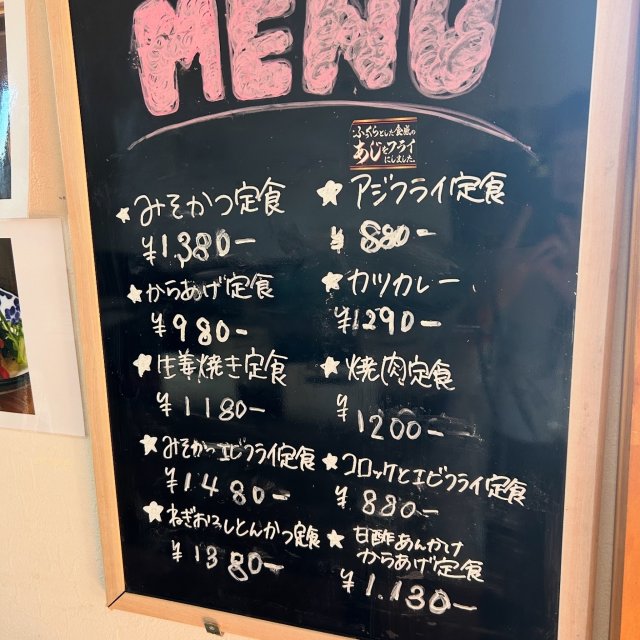 MENU
ふっくらとした食感の
あじをフライ
にしました
みそかつ定食
¥1,380-
からあげ定食
¥980-
生姜焼き定食
¥1180-
みそかつエビフライ定食
¥1480-
ねぎおろしとんかつ定食
¥1380-
アジフライ定食
¥880-
カツカレー
¥1290-
焼肉定食
¥1200-
コロッケとエビフライ定食
¥880-
甘酢あんかけ
からあげ定食
¥1.130-